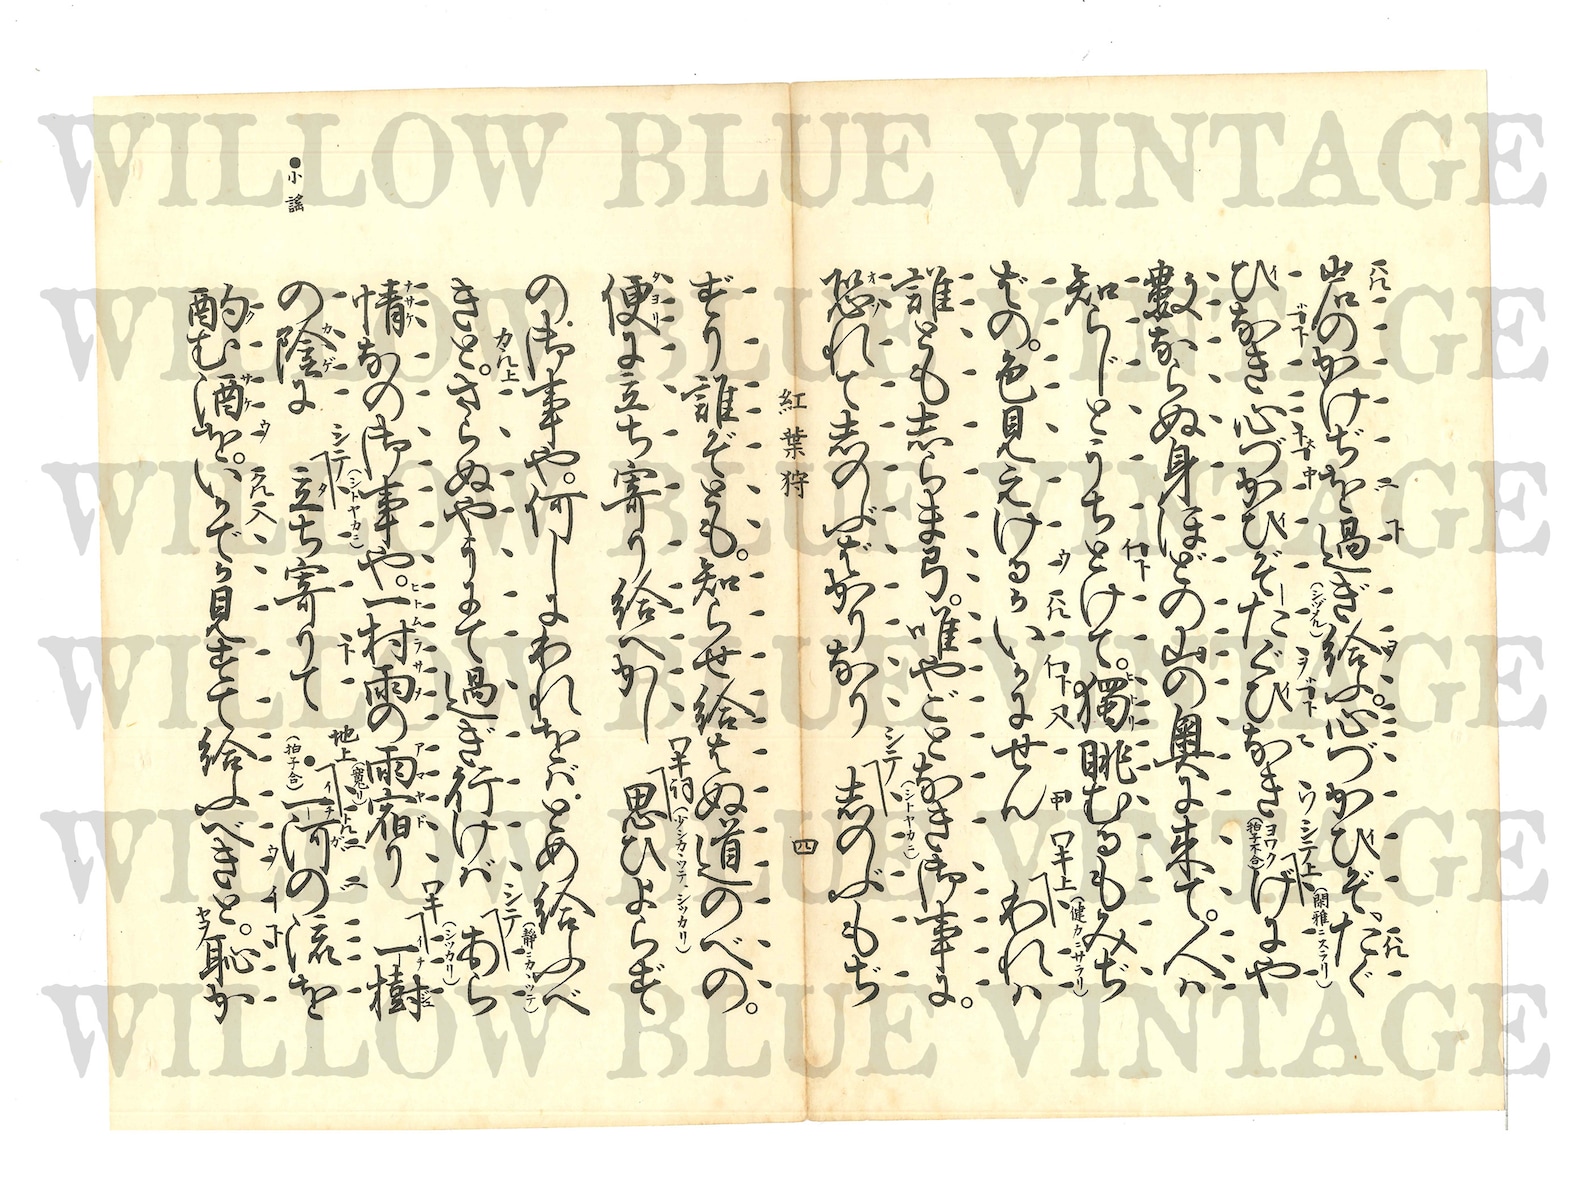 WILLOW BLUE VINTAGE
WILLOW BLUE VINTAGE
WILLOW BLUE VINTAGE
WILLOW BLUE VINTAGE
WILLOW BLUE VINTAGE
WILLOW BLUE VINTAGE
岩のかけぢを過ぎ給ふ。心づかひぞたぐ
ひなき心づかひぞたぐひなき げにや
數ならぬ身ほどの山の奥に来て。人は
知らじとうちとけて。獨眺むるもみぢ
ばの。色見えけるかいかにせん われは
誰とも志らま弓。唯やごとなき御事に。
恐れて志のぶばかりなり 志のぶもぢ
紅葉狩
四
ずり誰ぞとも。知らせ給はぬ道のべの。
便に立ち寄り給へかし 思ひよらず
の御事や。何しにわれをばとめ給ふべ
きと。さらぬやうにて過ぎ行けば あら
情なの御事や。一村雨の雨宿り 一樹
の陰に 立ち寄りて 一河の流を
酌む酒を。いかでか見すて給ふべきと。恥か
●小謡